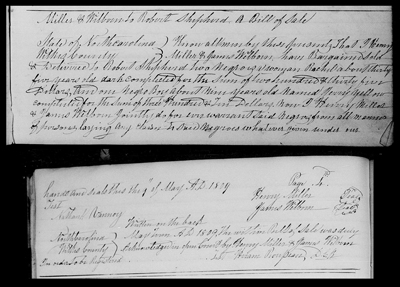 Miller & Wilborn to Robert Shepherd. A Bill of Sale
State of North Carolina } Know all men by these presents That I Henry
Wilkes County } Miller & James Wilborn have Bargained sold
& Delivered to Robert Shepherd Two Negroes a woman Rachel about thirty
five years old dark complected for the Sum of two hundred & thirty five
Dollars, and one Negro Boy about Nine years old Named Henry yellow
complected for the Sum of three Hundred & Ten Dollars, Now I Henry Miller
& James Wilborn Jointly do for ever warrant Said Negroes from all manner
of persons laying any claim to Said Negroes whatever given under our
hands and seals this the 9th of May A.D. 1829
Test Henry Miller
James Wilborn
Written on the back
North Carolina } May Term A.D. 1829 The within Bill of Sale was duly
Wilkes County } Acknowledged in open Court by Henry Miller & James Wilborn